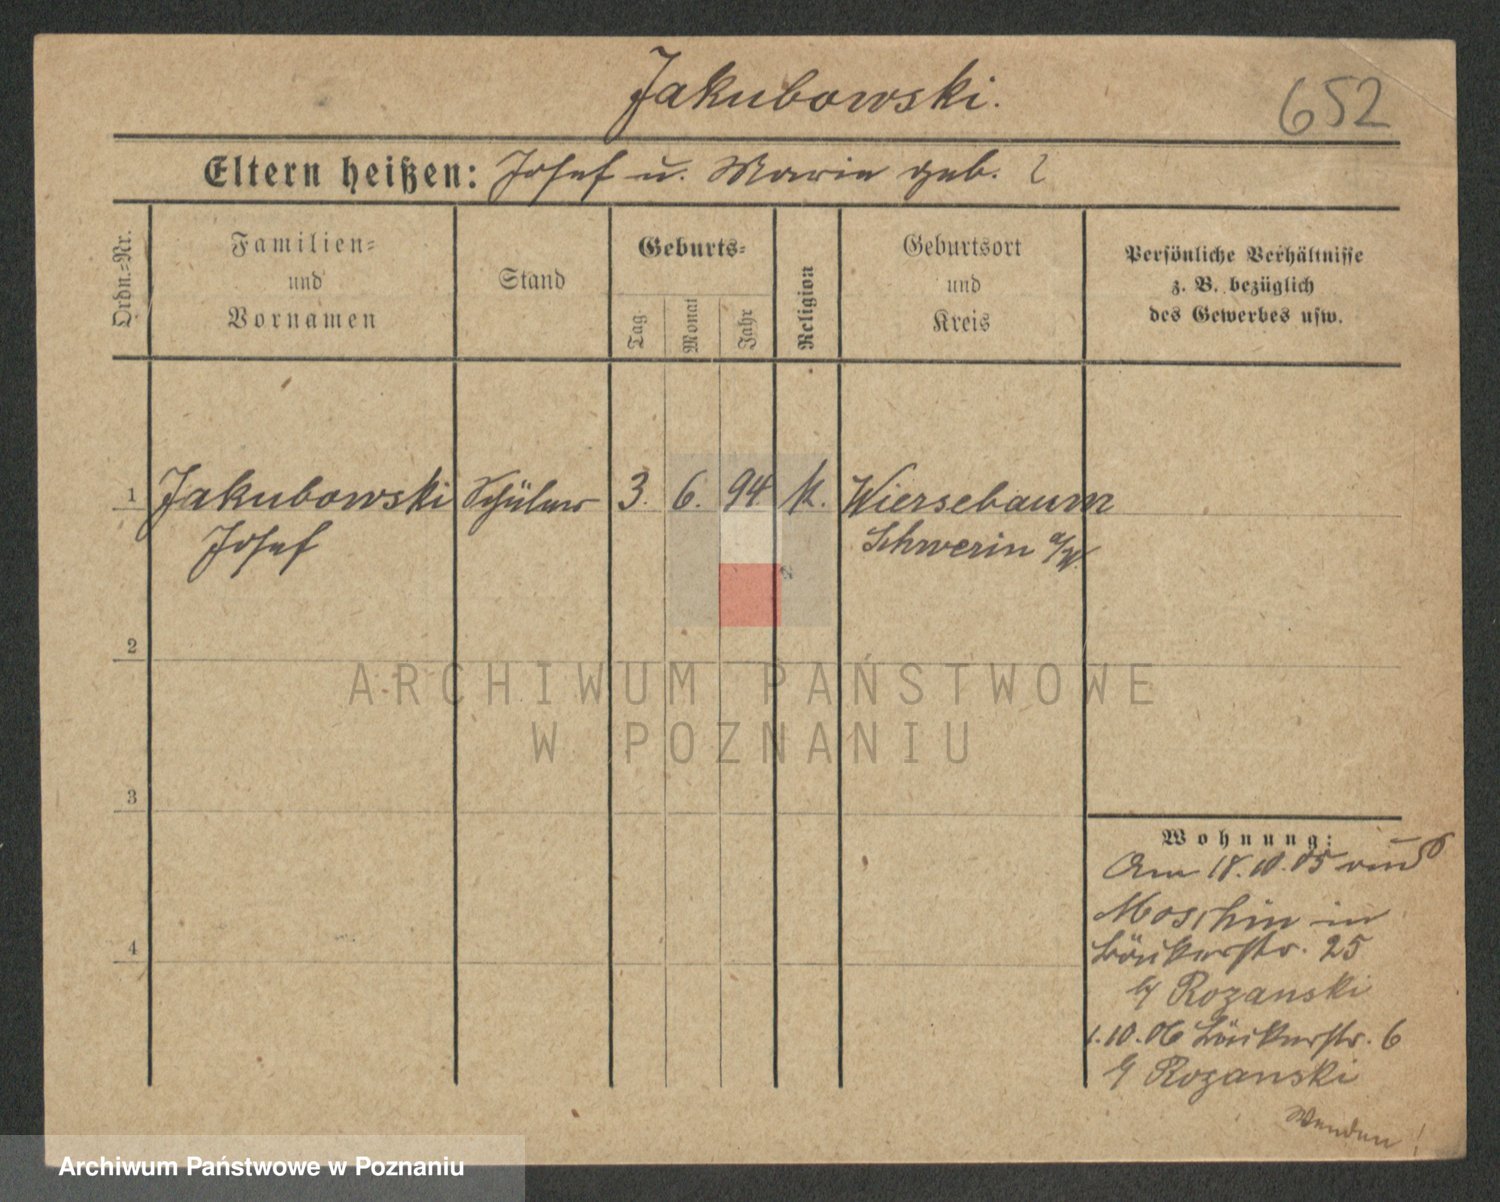 Jakubowski.
652
Eltern heißen: Josef u. Marie geb. ?
Ordn.=Nr.
Familien=
und
Vornamen
Stand
Geburts=
Tag
Monat
Jahr
Religion
Geburtsort
und
Kreis
Persönliche Verhältnisse
z. B. bezüglich
des Gewerbes usw.
1 Jakubowski Schüler 3. 6. 94. k. Wiersebaum
Josef Schwerin a/W.
2
ARCHIWUM PAŃSTWOWE
W POZNANIU
3
4
Wohnung:
Am 18.10.05 aus
Moschin in
Bäckerstr. 25
b/ Rozanski
1.10.06 Bäckerstr. 6
b/ Rozanski
Wenden!
Archiwum Państwowe w Poznaniu